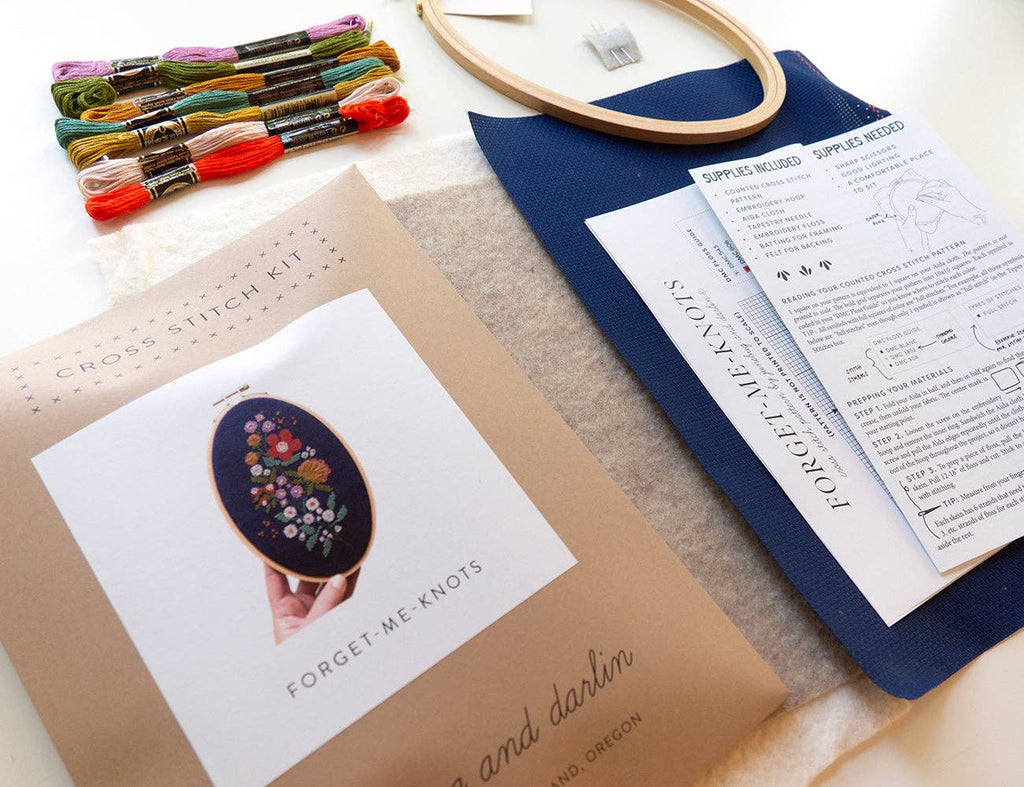 CROSS STITCH KIT
FORGET-ME-KNOTS
and darlin
AND, OREGON
DMC FLOSS GUIDE
FORGET-ME-KNOTS
(PATTERN IS NOT PRINTED TO SCALE)
SUPPLIES INCLUDED
COUNTED CROSS STITCH
PATTERN
EMBROIDERY HOOP
AIDA CLOTH
TAPESTRY NEEDLE
EMBROIDERY FLOSS
BATTING FOR FRAMING
FELT FOR BACKING
SUPPLIES NEEDED
SHARP SCISSORS
GOOD LIGHTING
A COMFORTABLE PLACE
TO SIT
READING YOUR COUNTED CROSS STITCH PATTERN
1 square on your pattern is equivalent to 1 square on your Aida cloth. The pattern is not
printed to scale. The bold grid separates your pattern into 10x10 squares. Each symbol is
coded in your "DMC Floss Guide" so you know where to stitch each color.
TIP: All symbols with full squares of color are "full stitches". For example, all three symbols
below are "full stitches" even though only 1 symbol is shown as "full stitch" in the Types
Stitches box.
DMC FLOSS GUIDE
DMC BLANC
TYPES OF STITCHES
FULL STITCH
PREPPING YOUR MATERIALS
STEP 1. Fold your Aida in half, and then in half again to find the
crease, then unfold your fabric. The center mark is
your starting point.
STEP 2. Loosen the screw on the embroidery
hoop and remove the inner ring. Sandwich the Aida cloth
screw and pull the Aida edges repeatedly until the cloth
out of the hoop throughout the project, so it doesn't
STEP 3. To prep a piece of floss, pull the
skein. Pull 12-18" of floss and cut. Stick to
with stitching.
TIP: Measure from your finger
Each skein has 6 strands that need
3, etc. strands of floss for each
aside the rest.